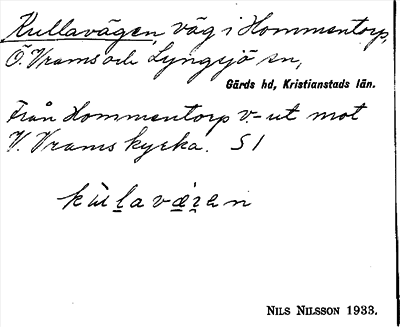 Kullavägen, väg i Hommentorp,
Ö. Vrams och Lyngsjö sn,
Gärds hd, Kristianstads län.
Från Hommentorp v-ut mot
V. Vrams kyrka. S1
NILS NILSSON 1933.